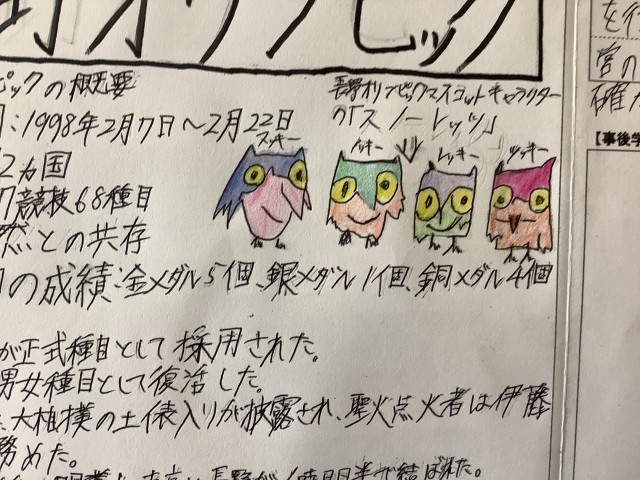 野オリンピック
ピックの概要
長野オリンピックマスコットキャラクター
の「スノーレッツ」
：1998年2月7日～2月22日
スッキー
ノッキー
レッキー
ツッキー
2カ国
7競技68種目
然との共存
の成績：金メダル5個、銀メダル1個、銅メダル4個
が正式種目として採用された。
男女種目として復活した。
、大相撲の土俵入りが披露され、聖火点火者は伊藤
務めた。
長野が
で結ばれた。
を行
宮の
確か
【事後学